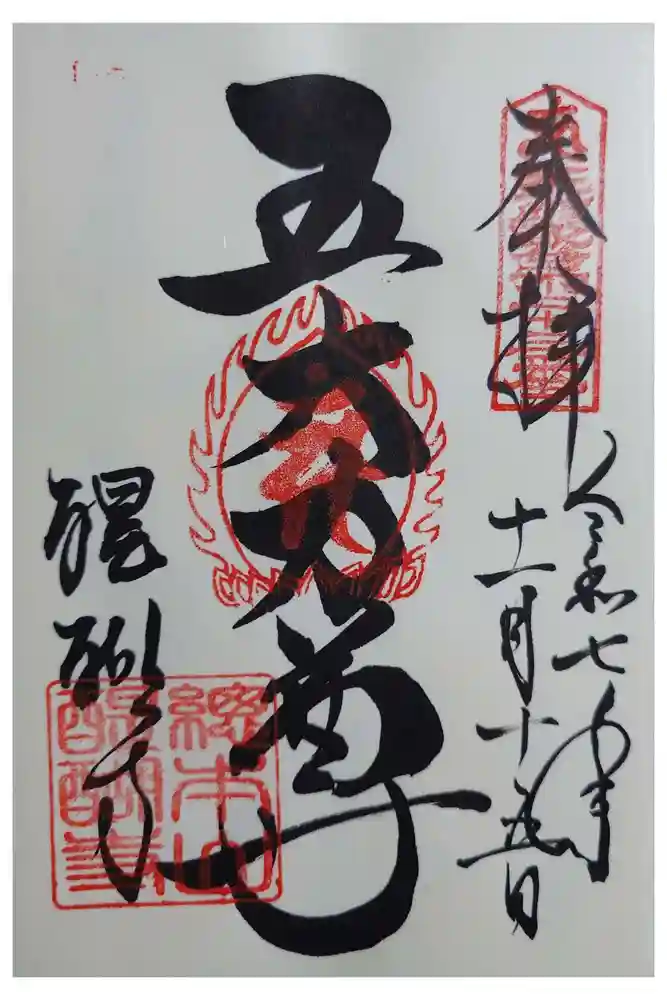 奉拝
令和七年
十一月十五日
五大力尊
醍醐寺
総本山
醍醐寺